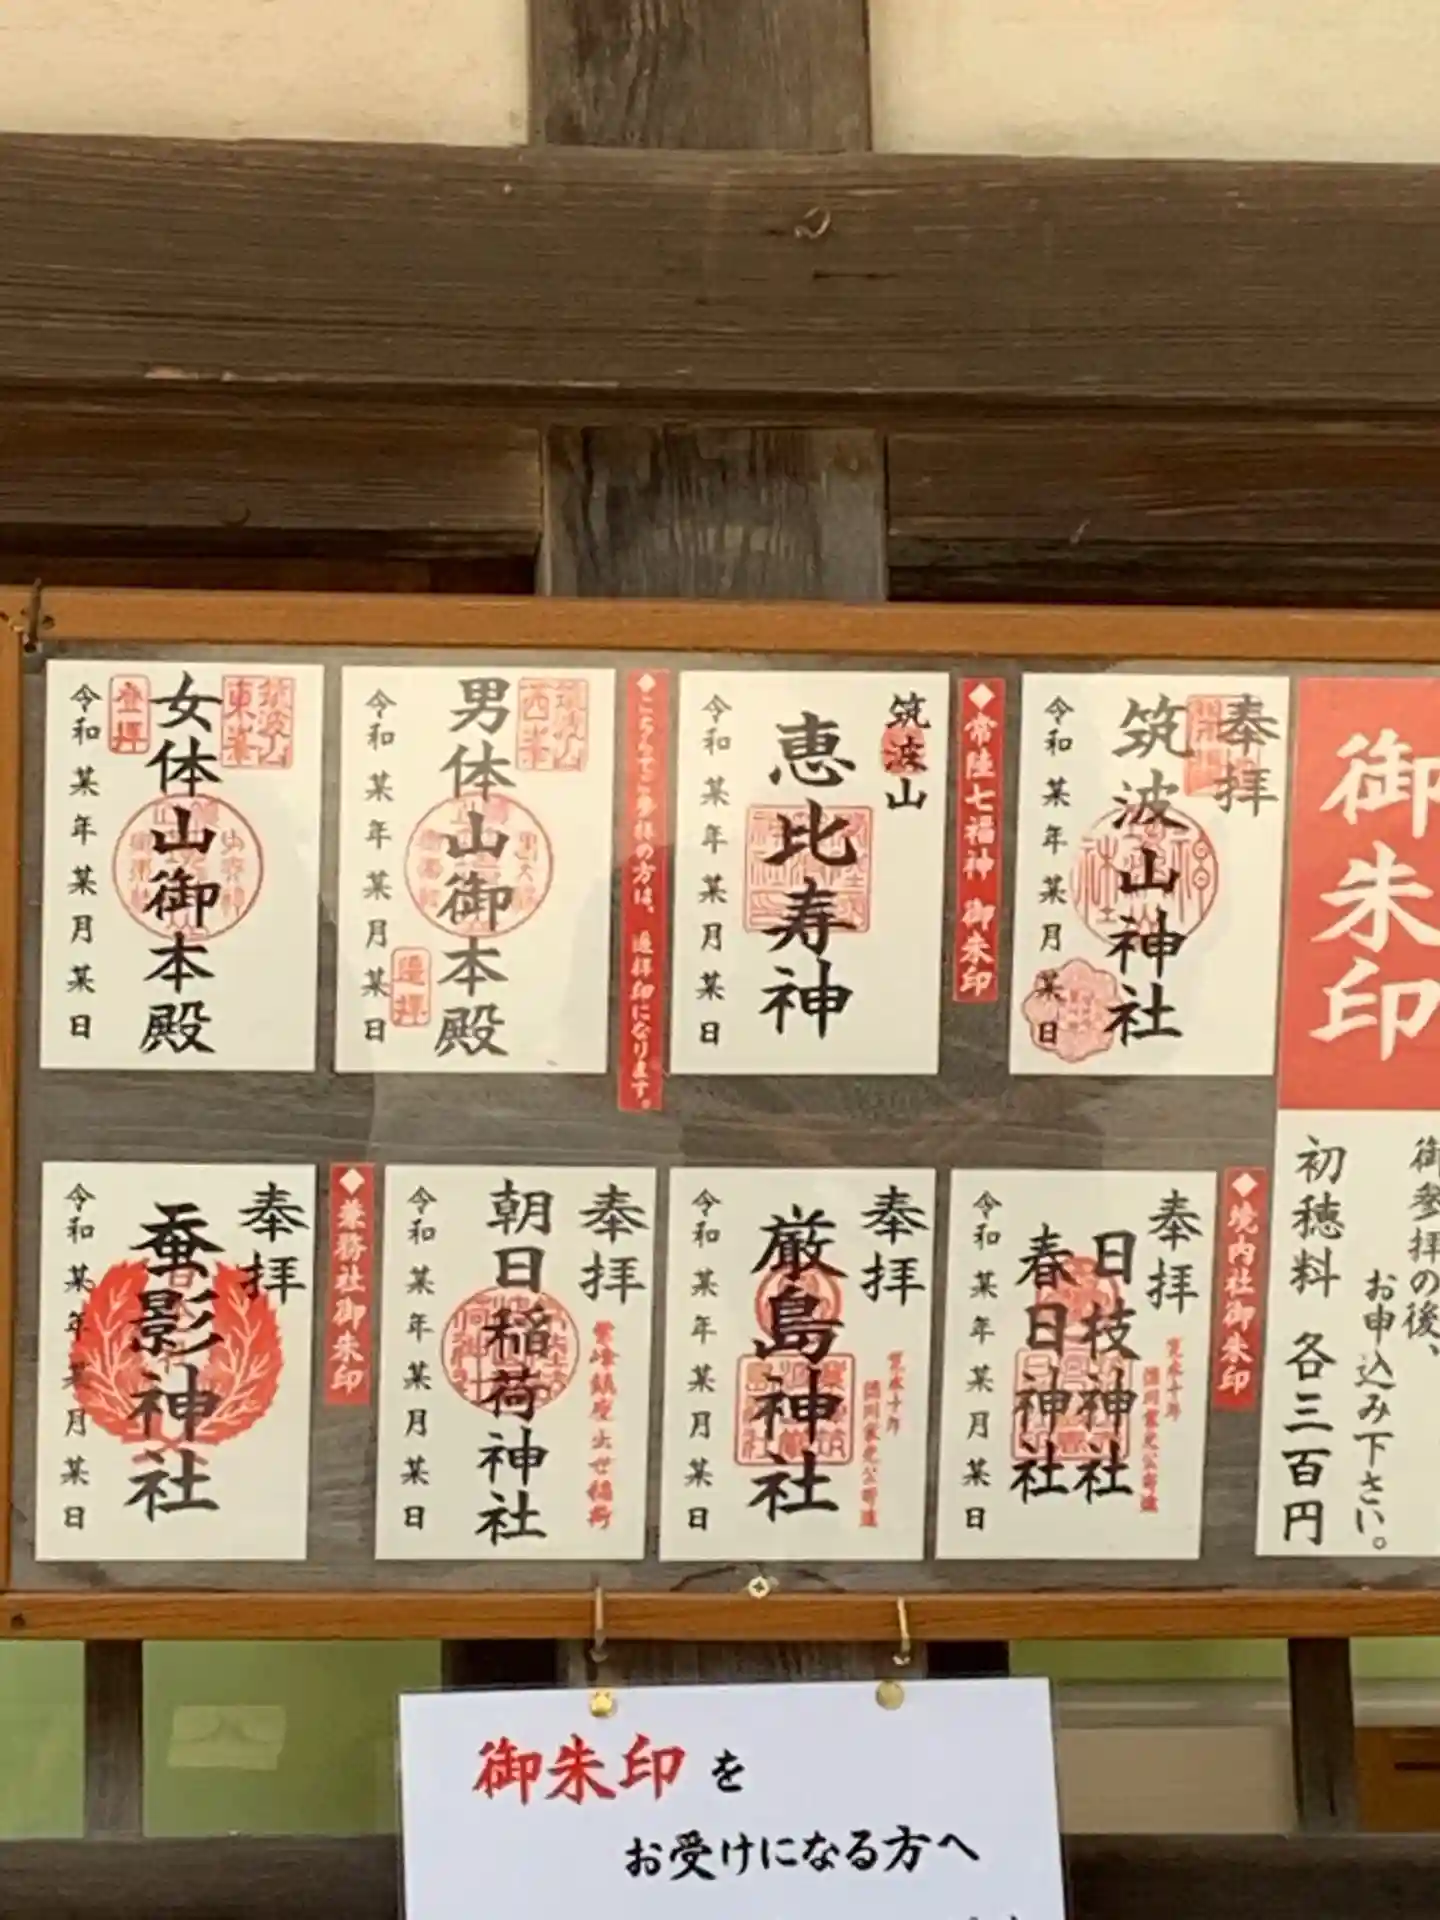 御朱印
御参拝の後、
お申込み下さい。
初穂料 各三百円
奉拝
筑波山神社
令和某年某月某日
◆常陸七福神 御朱印
筑波山
恵比寿神
令和某年某月某日
◆こちらでご参拝の方は、遥拝印になります。
筑波山
西峯
男体山御本殿
遥拝
令和某年某月某日
筑波山
東峯
女体山御本殿
登拝
令和某年某月某日
◆境内社御朱印
奉拝
寛永十年
徳川家光公寄進
日枝神社
春日神社
令和某年某月某日
奉拝
寛永十年
徳川家光公寄進
厳島神社
令和某年某月某日
奉拝
鎮座出世稲荷
朝日稲荷神社
令和某年某月某日
◆兼務社御朱印
奉拝
蚕影神社
令和某年某月某日
御朱印を
お受けになる方へ